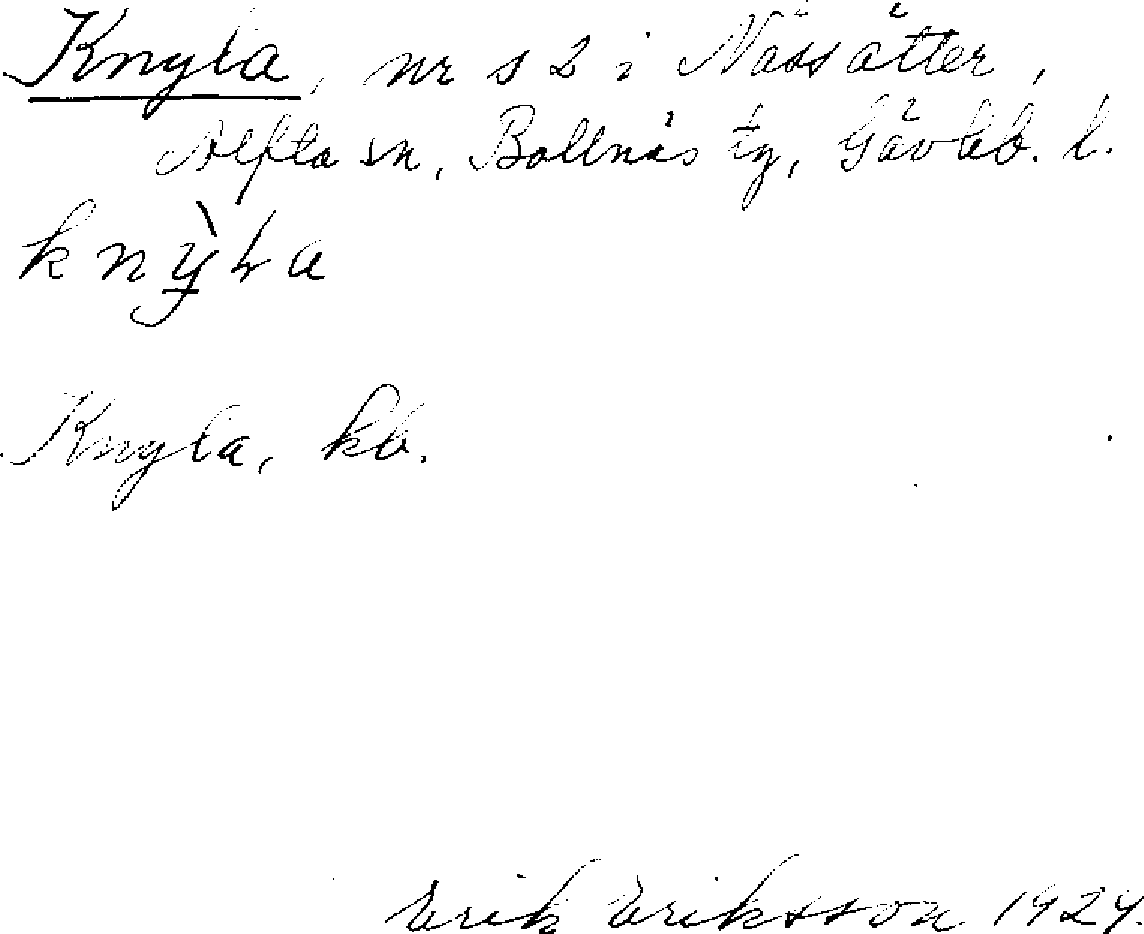 Knyla, nr s 2 i Nässätter,
Alfta sn, Bollnäs tg, Gävleb. l.
knỳɫa
Knyla, kb.
Erik Eriksson 1924.